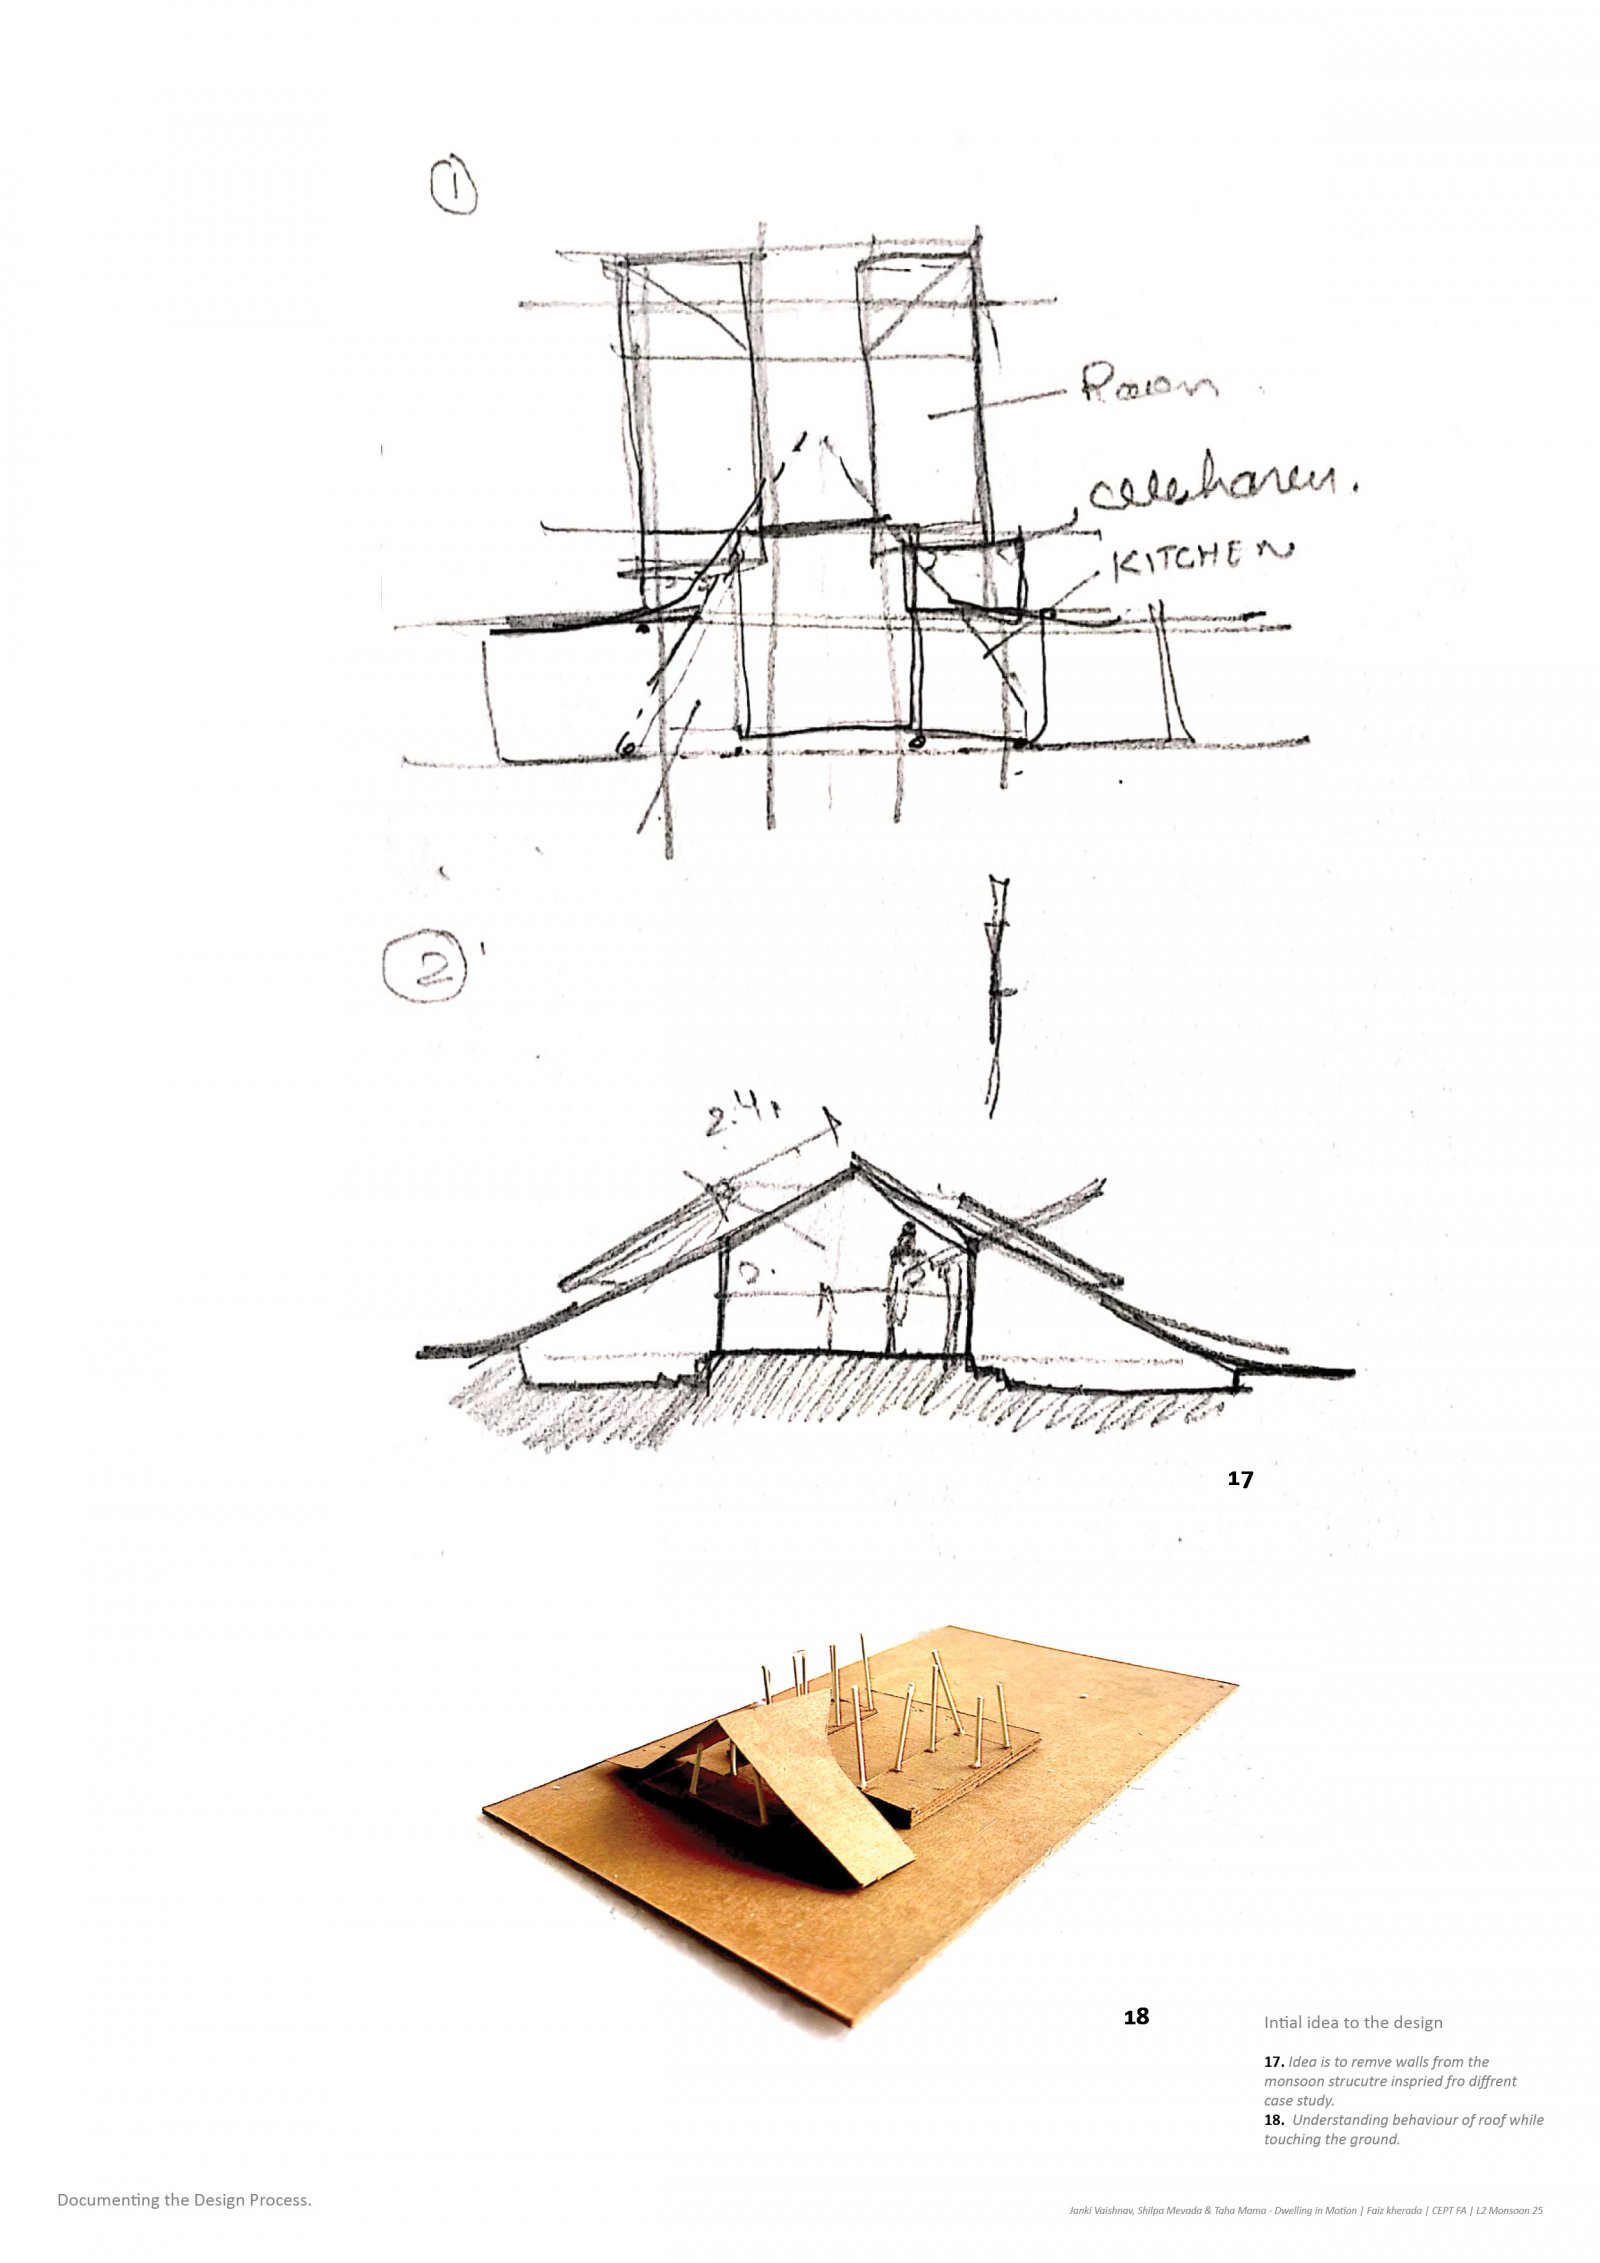 1
Room
KITCHEN
2
2.4
17
18
Intial idea to the design
17. Idea is to remve walls from the
monsoon strucutre inspried fro diffrent
case study.
18. Understanding behaviour of roof while
touching the ground.
Documenting the Design Process.
Janki Vaishnav, Shilpa Mevada & Taha Mama - Dwelling in Motion | Faiz kherada | CEPT FA | L2 Monsoon 25